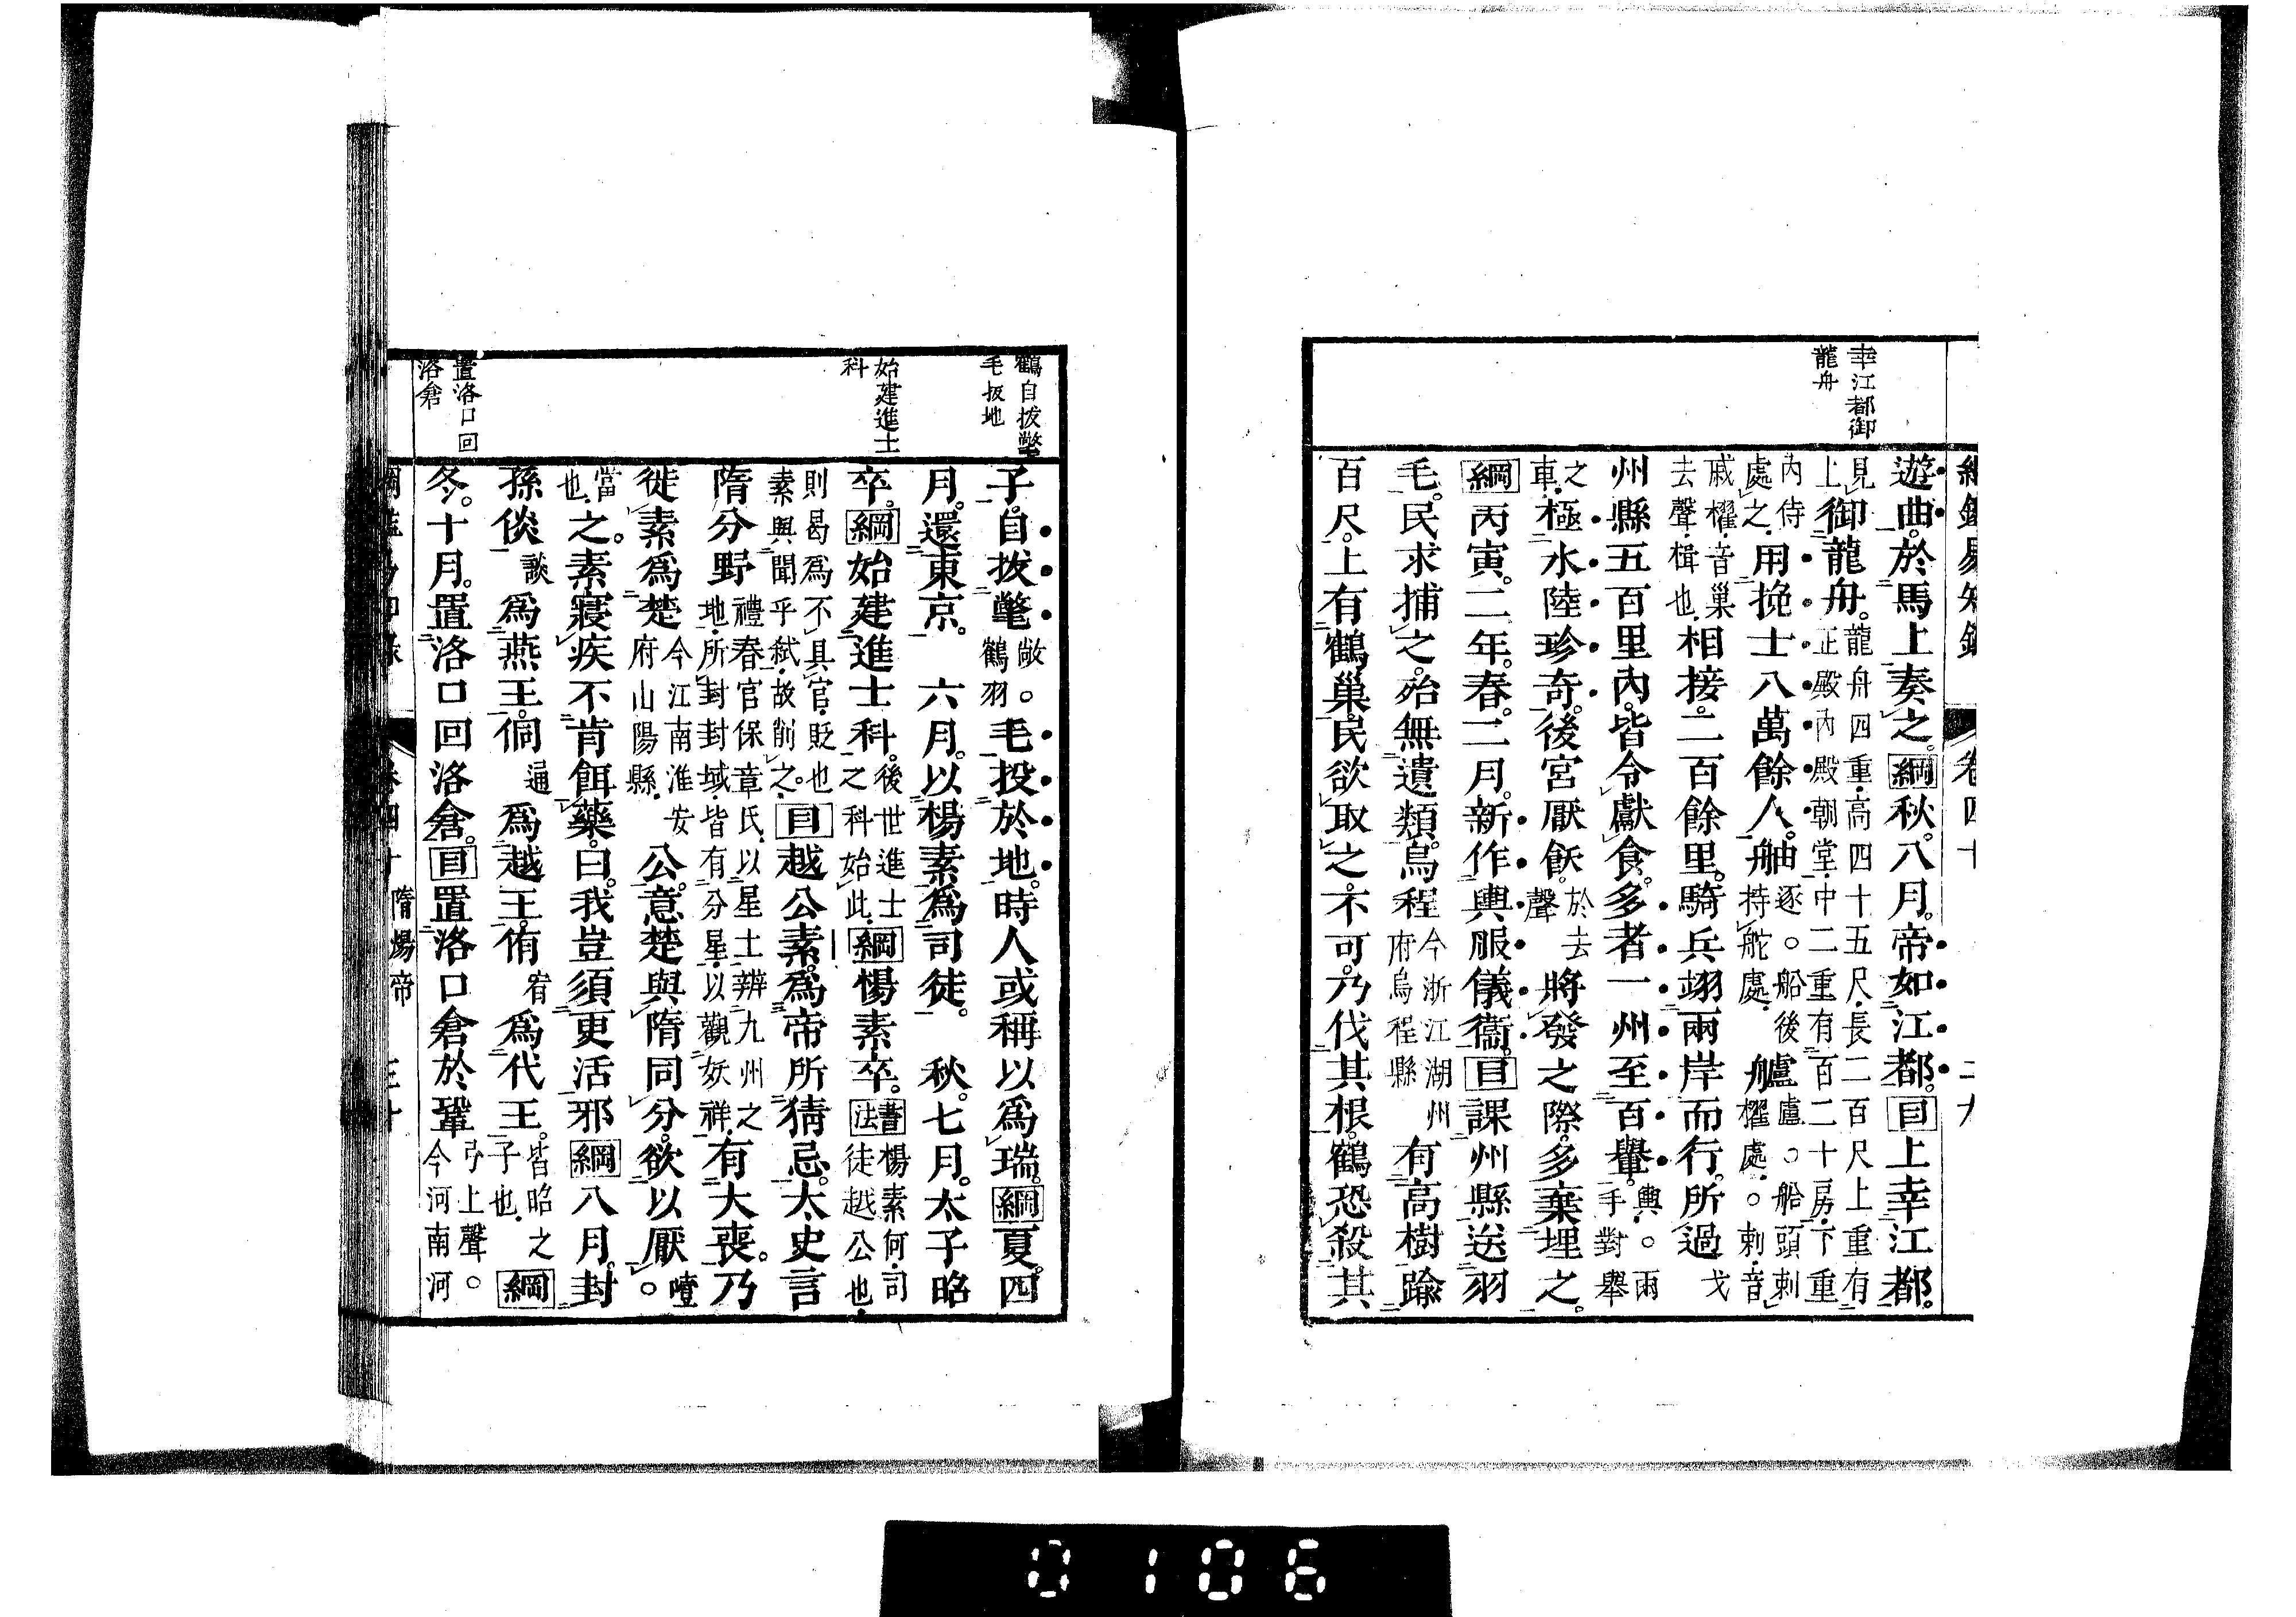 幸江都御
龍舟
遊曲。於馬上奏之。綱秋。八月。帝如江都。目上幸江都。
見上御龍舟。龍舟四重。高四十五尺。長二百尺。上重有正殿內殿朝堂。中二重有百二十房。下重
內侍處之。用挽士八萬餘人。舳逐。○船後持舵處。艫盧。○船頭刺櫂處。○刺。音
戚。櫂。音巢去聲。楫也。相接。二百餘里。騎兵翊兩岸而行。所過戈
州縣五百里內。皆令獻食。多者一州至百轝。輿。○兩手對舉
之車。極水陸珍奇。後宮厭飫。於去聲將發之際。多棄埋之。
綱丙寅。二年。春。二月。新作輿服儀衞。目課州縣送羽
毛。民求捕之。殆無遺類。烏程今浙江湖州府烏程縣有高樹踰
百尺。上有鶴巢。民欲取之。不可。乃伐其根。鶴恐殺其
鶴自拔氅
毛投地
始建進士
科
置洛口回
洛倉
子。自拔氅敞。○鶴羽毛投於地。時人或稱以爲瑞。綱夏。四
月。還東京。 六月。以楊素爲司徒。 秋。七月。太子昭
卒。綱始建進士科。後世進士之科始此。綱楊素卒。書法楊素何。司徒越公也。
則曷爲不具官。貶也素與聞乎弑。故削之。目越公素。爲帝所猜忌。太史言
隋分野禮春官保章氏。以星土辨九州之地。所封封域。皆有分星。以觀妖祥。有大喪。乃
徙素爲楚今江南淮安府山陽縣。公。意楚與隋同分。欲以厭。○噎
當也。之。素寢疾不肯餌藥。曰。我豈須更活邪綱八月。封
孫倓談爲燕王。侗通爲越王。侑宥爲代王。皆昭之子也。綱
冬。十月。置洛口回洛倉。目置洛口倉於鞏弓上聲。○今河南河
隋煬帝